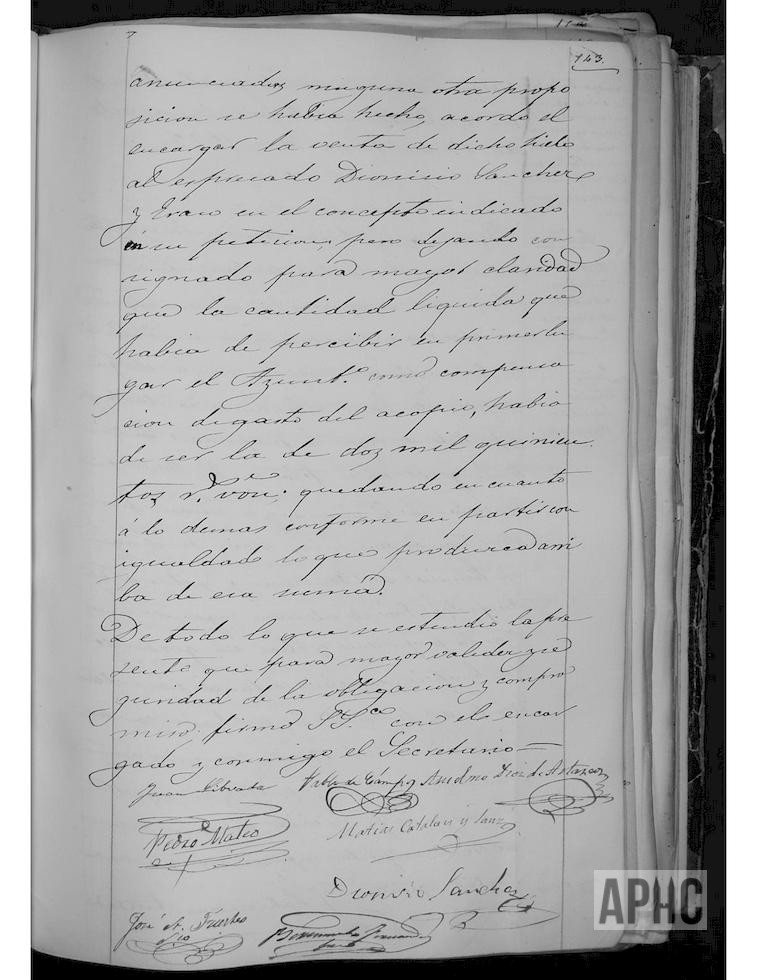 143.
anunciados, ninguna otra propo
sicion se habia hecho, acordo el
encargar la venta de dicho hielo
al espresado Dionisio Sanchez
y Erau en el concepto indicado
en su peticion, pero dejando con
signado para mayor claridad
que la cantidad liquida que
habia de percibir en primer lu
gar el Ayunt.º como compensa
cion de gasto del acopio, habia
de ser la de dos mil quinien
tos r.s von: quedando en cuanto
á lo demas conforme en partir con
igualdad lo que produzca arri
ba de esa suma.
De todo lo que se estendio la pre
sente que para mayor validez y se
guridad de la obligacion y compro
miso, firmó SS.ª con el encar
gado y conmigo el Secretario—
Juan Pablo de Campo Anselmo Diaz de Artazcoz
Pedro Mateo Matias Catalan y Sanz
Dionisio Sanchez
José A. Fuertes
APHC